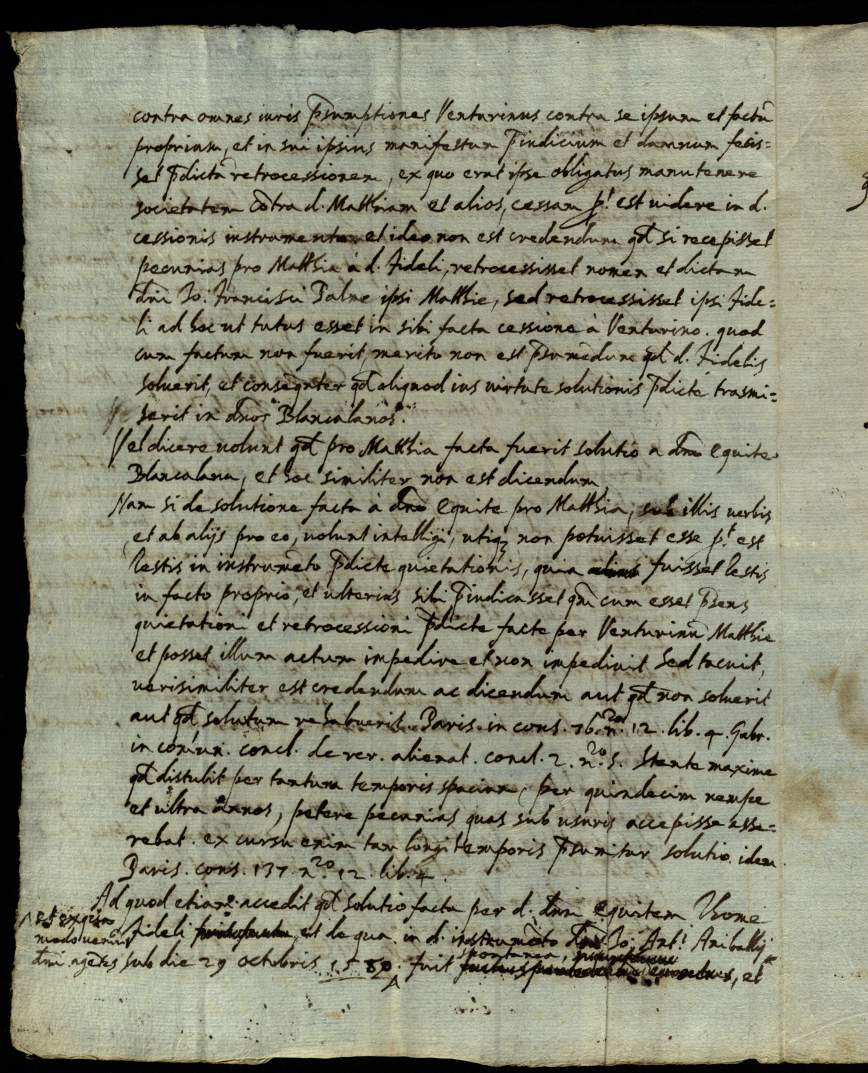 contra omnes iuris p̄sumptiones Venturinus contra se ipsum et factū
proprium, et in sui ipsius manifestum p̄iudicium et damnum fecis=
set p̄dictā retrocessionem, ex quo erat ipse obligatus manutenere
societatem cōtra d. Matthiam et alios, cessam p.t est videre in d.
cessionis instrumento et ideo non est credendum qd̄ si recepisset
pecunias pro Matthia à d. Fideli, retrocessisset nomen et dictam
dn̄i Jo: Francisci Palme ipsi Matthie, sed retrocessisset ipsi Fide=
li ad hoc ut tutus esset in sibi facta cessione à Venturino. quod
cum factum non fuerit, merito non est p̄sumēdum qd̄ d. Fidelis
soluerit, et conseqn̄ter qd̄ aliquod ius virtute solutionis p̄dicte trasmi=
serit in dn̄os Blancalanos.
Vel dicere uolunt qd̄ pro Matthia facta fuerit solutio a dn̄o equite
Blancalana, et hoc similiter non est dicendum
Nam si de solutione facta à dn̄o equite pro Matthia, sub illis uerbis
et ab alijs pro eo, uolunt intelligi, utiqȝ non potuisset esse p.t est
testis in instrumēto p̄dicte quietationis, quia fuisset testis
in facto proprio, et ulterius sibi p̄iudicasset qm̄ cum esset p̄sens
quietationi et retrocessioni p̄dicte facte per Venturinū Matthie
et posset illum actum impedire et non impediuit sed tacuit,
uerisimiliter est credendum ac dicendum aut qd̄ non soluerit
aut qd̄ solutum rehabuerit. Paris. in cons. 76. n.ro 12. lib. 4. Gabr.
in com̄un. concl. de rer. alienat. concl. 2. n.ro 5. Stante maxime
qd̄ distulit per tantum temporis spacium, per quindecim nempe
et ultra annos, petere pecunias quas sub usuris accepisse asse=
rebat. ex cursu enim tam longi temporis p̄sumitur solutio. idem
Paris. cons. 137. n.ro 12. lib. 4.
Ad quod etiam accedit qd̄ solutio facta per d. dn̄m equitem Thome
Fideli, et de qua in d. instrumēto dn̄i Jo: Ant.i Aniballis
sub die 29 octobris 1580. fuit spontanea, et